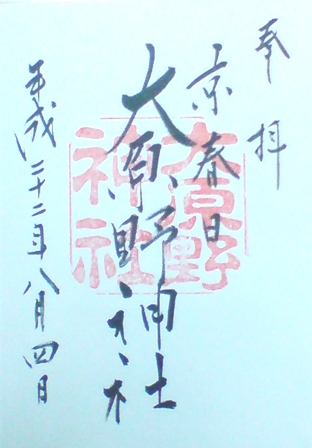 奉拝
京春日
大原野神社
平成二十二年八月四日
大原野
神社